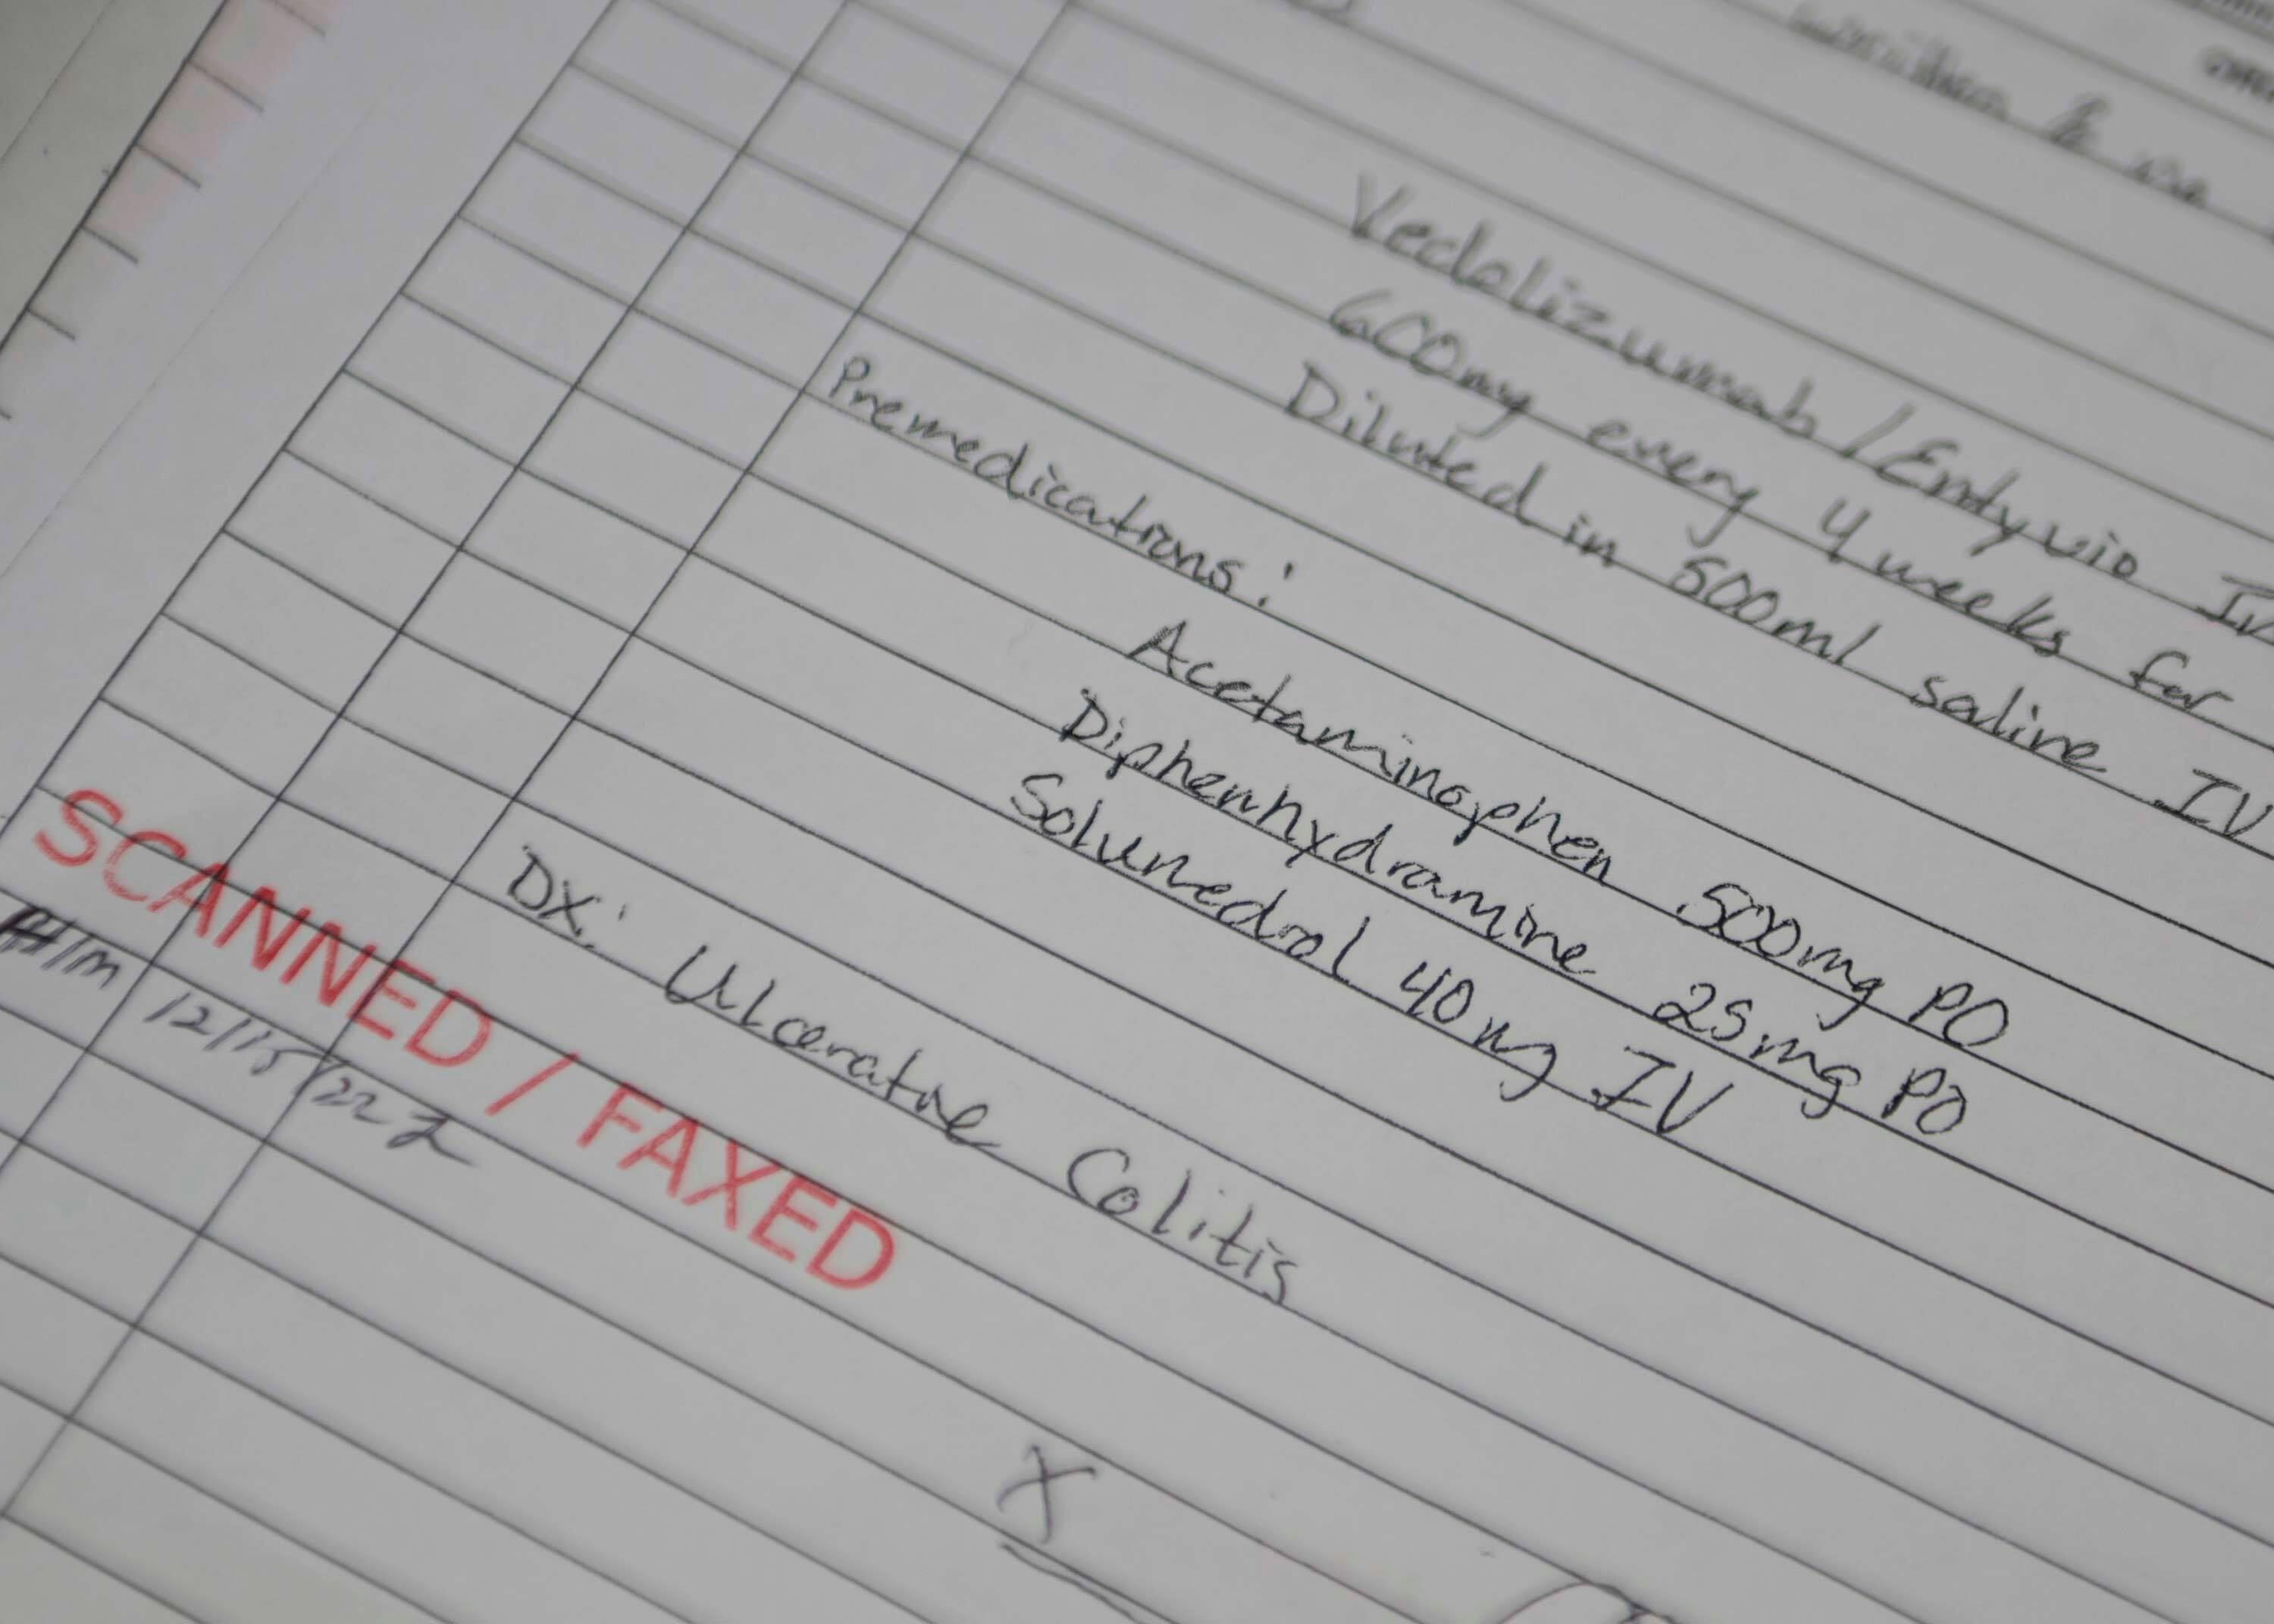 Vedolizumab / Entyvio IV
600mg every 4 weeks for
Diluted in 500ml saline IV
Premedications:
Acetaminophen 500mg PO
Diphenhydramine 25mg PO
Solumedrol 40mg IV
DX: Ulcerative Colitis
SCANNED / FAXED
12/15/22
X